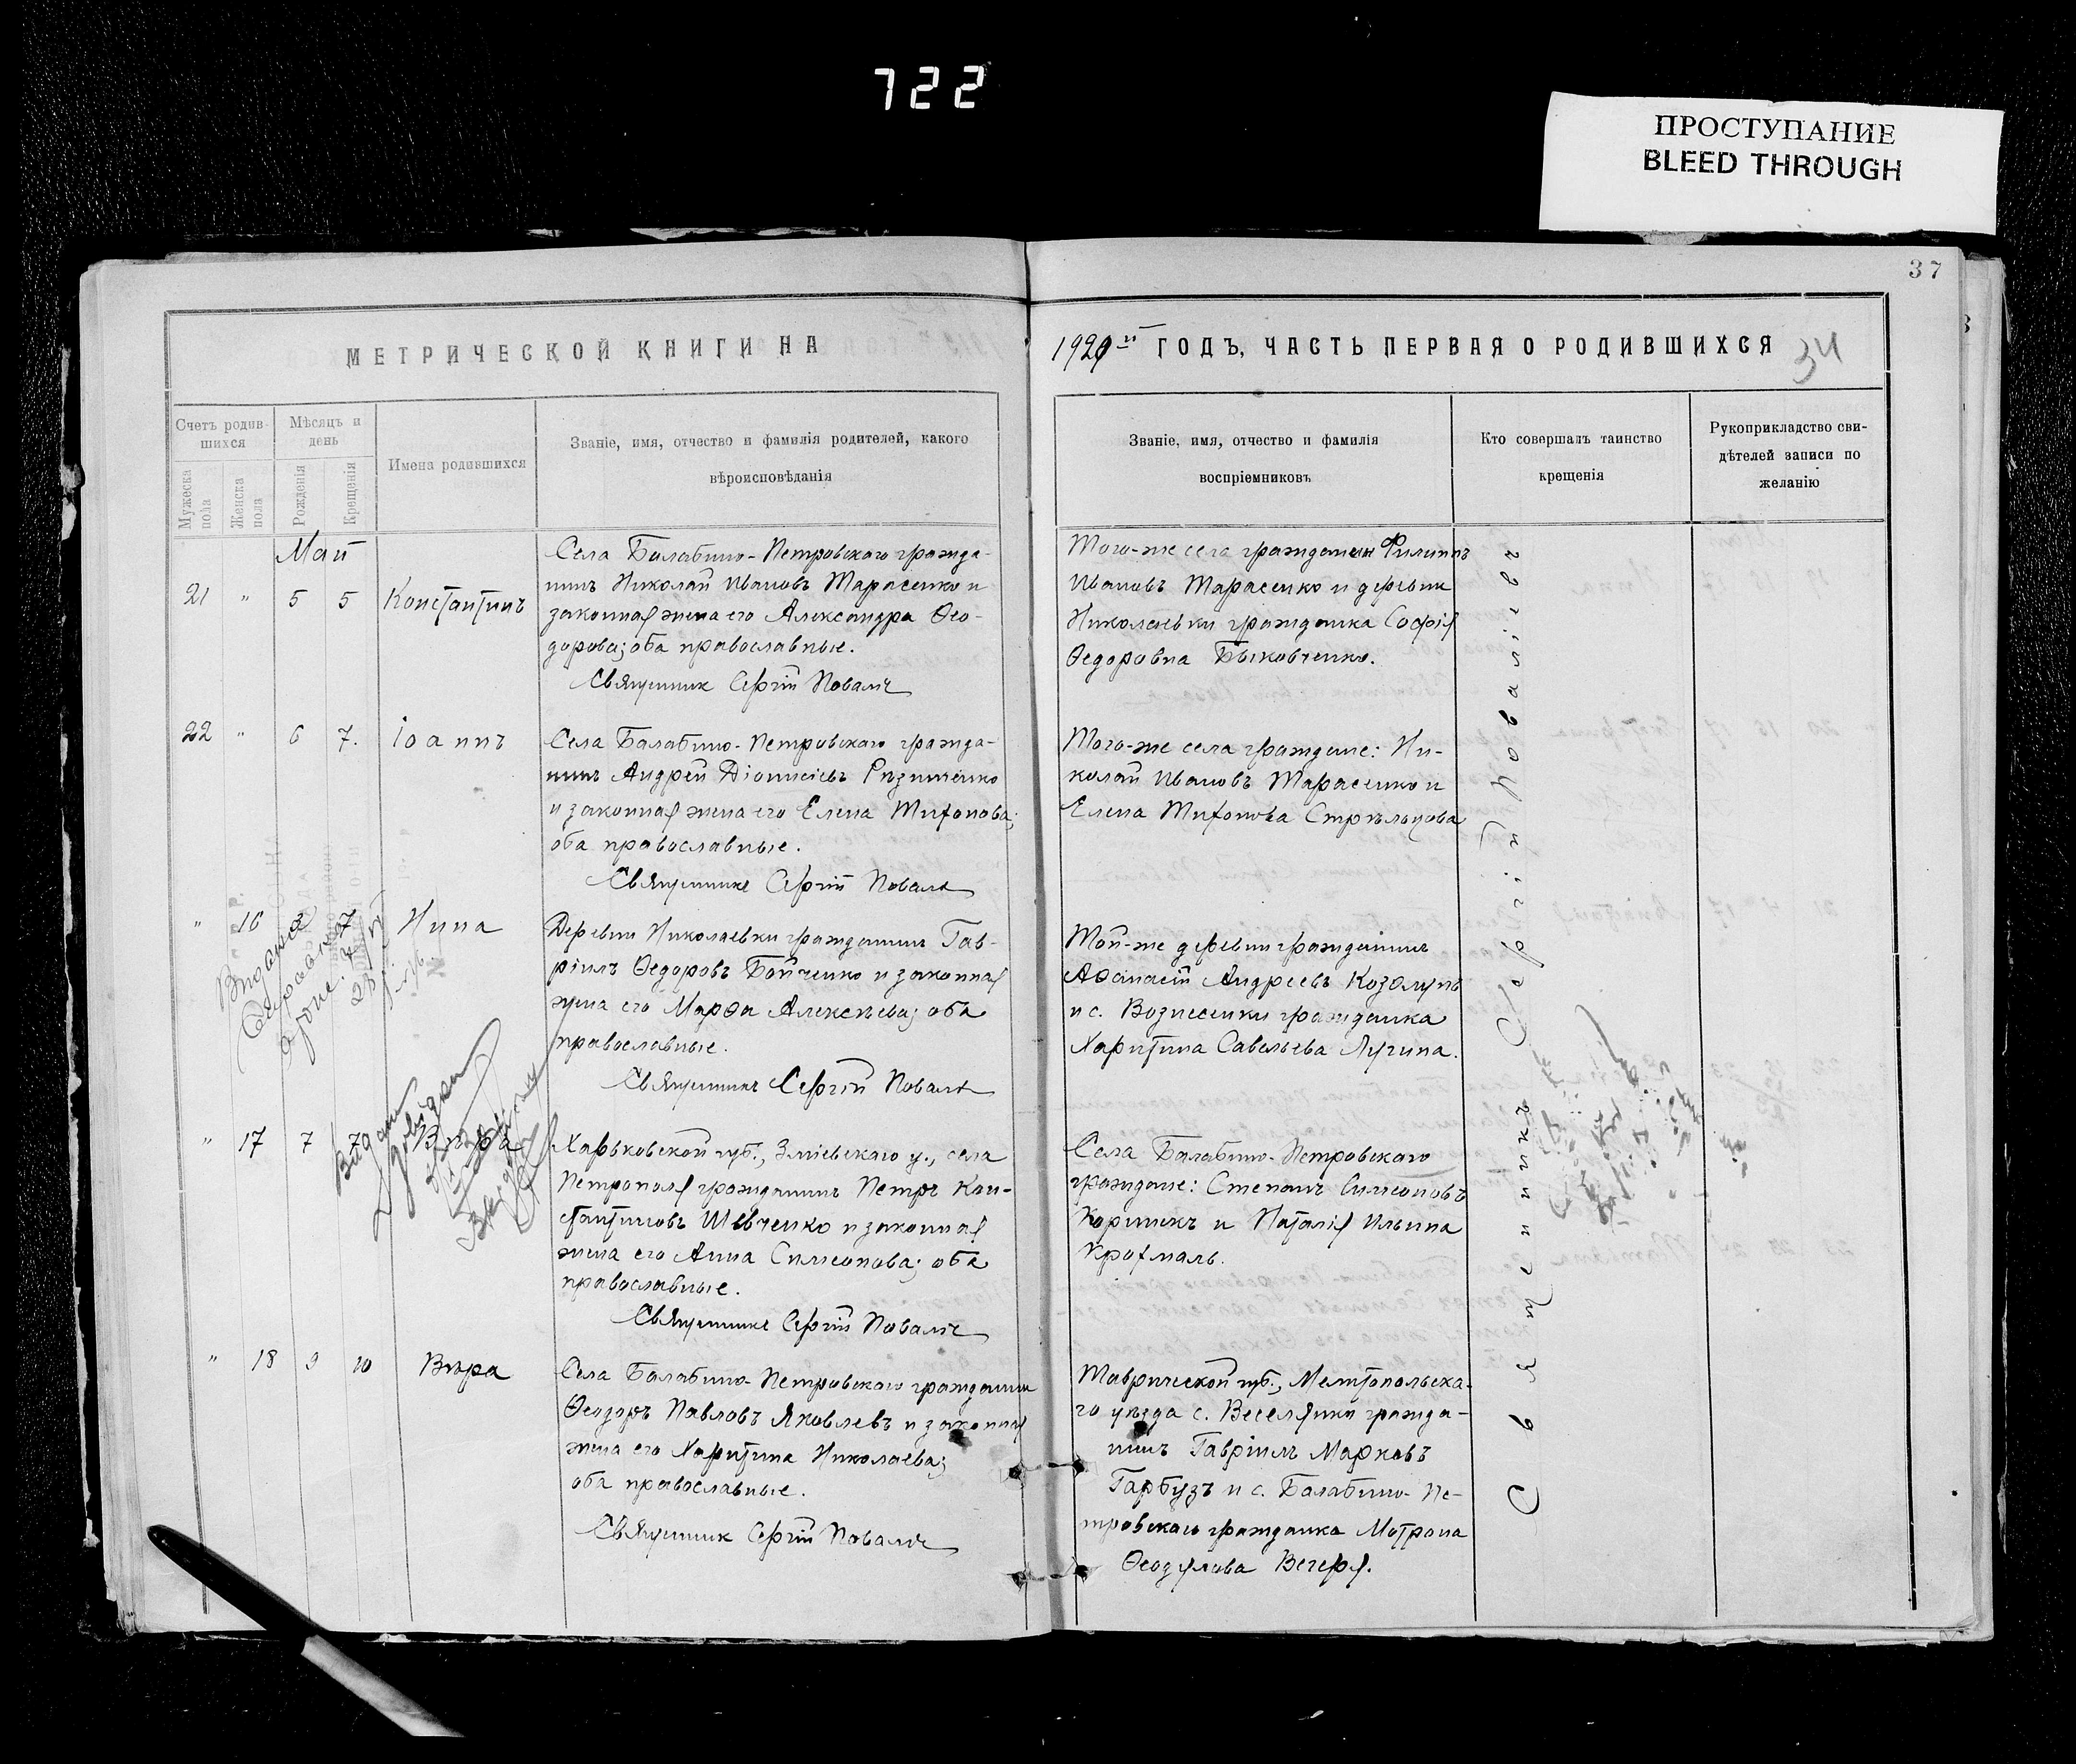 722
ПРОСТУПАНИЕ
BLEED THROUGH
37
МЕТРИЧЕСКОЙ КНИГИ НА
1920 й ГОДЪ, ЧАСТЬ ПЕРВАЯ О РОДИВШИХСЯ
34
Счетъ родив-
шихся
Мужеска
пола
Женска
пола
Мѣсяцъ и
день
Рожденія
Крещенія
Имена родившихся
Званіе, имя, отчество и фамилія родителей, какого
вѣроисповѣданія
Званіе, имя, отчество и фамилія
воспріемниковъ
Кто совершалъ таинство
крещенія
Рукоприкладство сви-
дѣтелей записи по
желанію
Май
21 " 5 5 Константинъ
Села Балабино-Петровскаго гражда-
нинъ Николай Ивановъ Тарасенко и
законная жена его Александра Ѳео-
дорова; оба православные.
Священник Сергій Поваліч
Того-же села гражданин Филиппъ
Ивановъ Тарасенко и деревни
Николаевки гражданка Софія
Ѳедоровна Быковченко.
22 " 6 7. Іоаннъ
Села Балабино-Петровскаго гражда-
нинъ Андрей Діонисіевъ
и законная жена его Елена Тихонова;
оба православные.
Священникъ Сергій
Того-же села граждане: Ни-
колай Ивановъ Тарасенко и
Елена Тихонова Стрѣльцова
" 16 7 Нина
Деревни Николаевки гражданинъ Гав-
ріилъ Ѳедоровъ Бойченко и законная
жена его Марѳа Алексѣева; оба
православные.
Священникъ Сергій
Той-же деревни гражданинъ
Аѳанасій Андреевъ Козолупъ
и с. Вознесенки гражданка
Харитина Савельева Лугина.
" 17 7 7 Вѣра
Харьковской губ., Зміевскаго у., села
Петрополя гражданинъ Петръ Кон-
стантиновъ Шевченко и законная
жена его Анна Симеонова; оба
православные.
Священникъ Сергій
Села Балабино-Петровскаго
граждане: Степанъ Симеоновъ
Корпикъ и Наталія Ильина
Крохмаль.
" 18 9 10 Вѣра
Села Балабино-Петровскаго гражданин
Ѳеодоръ Павловъ Яковлевъ и законная
жена его Харитина Николаева;
оба православные.
Священник Сергій
Таврической губ., Мелитопольска-
го уѣзда с. Веселянки гражда-
нинъ Гавріилъ Марковъ
Гарбузъ и с. Балабино-Пе-
тровскаго гражданка Матрона
Ѳеодулова Вечеря.
Священникъ Сергій